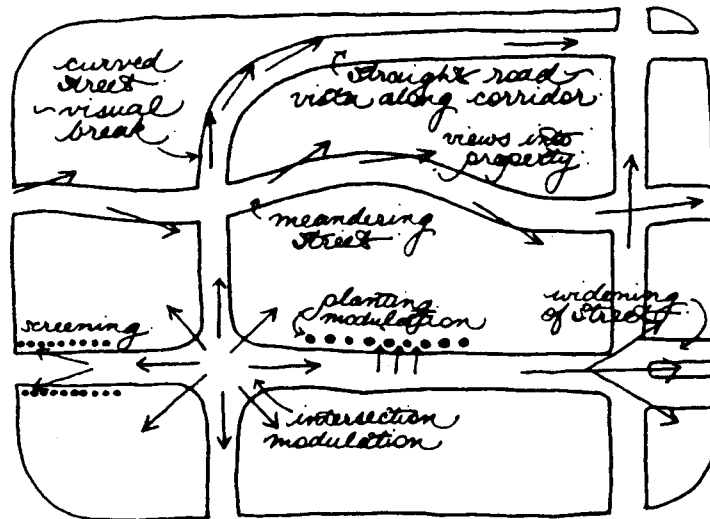 curved
street
- visual
break
straight road -
vista along corridor
views into
property
meandering
street
screening
planting
modulation
widening
of street
intersection
modulation